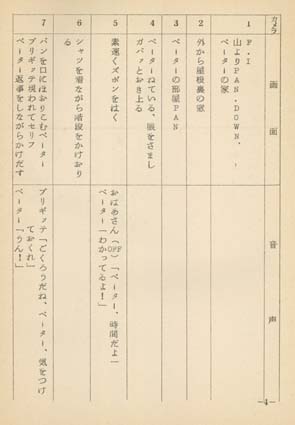 カメラ
画面
音声
1
F.I
山よりPAN.DOWN.
ペーターの家
2
外から屋根裏の窓
3
ペーターの部屋PAN
4
ペーターねている、眼をさまし
ガバッとおき上る
5
素速くズボンをはく
おばあさん(OFF)「ペーター、時間だよー
ペーター「わかってるよ!」
6
シャツを着ながら階段をかけおり
る
7
パンを口にほおりこむペーター
ブリギッテ現われてセリフ
ペーター返事をしながらかけだす
ブリギッテ「ごくろうだね、ペーター、気をつけ
ておくれ」
ペーター「うん!」
-4-